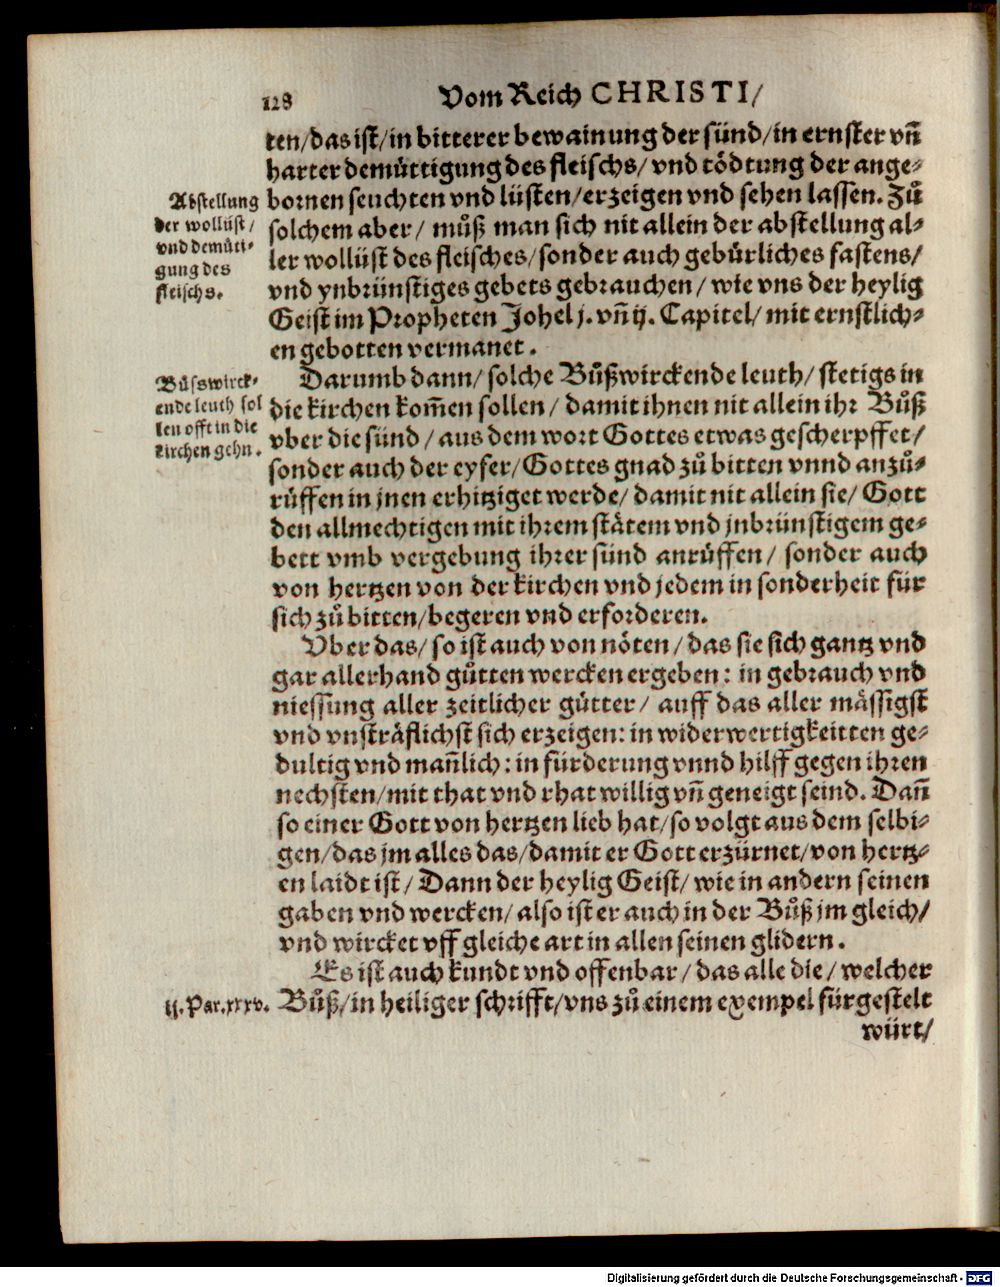 128
Vom Reich CHRISTI/
ten/das ist/in bitterer bewainung der sünd/in ernster vñ
harter demüttigung des fleischs/ vnd tödtung der ange⸗
bornen seuchten vnd lüsten/erzeigen vnd sehen lassen. Zů
solchem aber/ můß man sich nit allein der abstellung al⸗
ler wollüst des fleisches/sonder auch gebürliches fastens/
vnd ynbrünstiges gebets gebrauchen/ wie vns der heylig
Geist im Propheten Johel j. vñ ij. Capitel/ mit ernstlich⸗
en gebotten vermanet.
Abstellung
der wollüst/
vnd demüti⸗
gung des
fleischs.
Darumb dann/ solche Bůßwirckende leuth/ stetigs in
die kirchen kom̃en sollen/ damit ihnen nit allein ihr Bůß
vber die sünd/ aus dem wort Gottes etwas gescherpffet/
sonder auch der eyfer/Gottes gnad zů bitten vnnd anzů⸗
rüffen in jnen erhitziget werde/ damit nit allein sie/ Gott
den allmechtigen mit ihrem stätem vnd jnbrünstigem ge⸗
bett vmb vergebung ihrer sünd anrüffen/ sonder auch
von hertzen von der kirchen vnd jedem in sonderheit für
sich zů bitten/begeren vnd erforderen.
Bůsswirck⸗
ende leuth sol
len offt in die
kirchen gehn.
Vber das/ so ist auch von nöten/ das sie sich gantz vnd
gar allerhand gůtten wercken ergeben: in gebrauch vnd
niessung aller zeitlicher gütter/ auff das aller mässigst
vnd vnsträflichst sich erzeigen: in widerwertigkeitten ge⸗
dultig vnd mañlich: in fürderung vnnd hilff gegen ihren
nechsten/mit that vnd rhat willig vñ geneigt seind. Dañ
so einer Gott von hertzen lieb hat/so volgt aus dem selbi⸗
gen/das jm alles das/damit er Gott erzürnet/von hertz⸗
en laidt ist/ Dann der heylig Geist/ wie in andern seinen
gaben vnd wercken/ also ist er auch in der Bůß jm gleich/
vnd wircket vff gleiche art in allen seinen glidern.
Es ist auch kundt vnd offenbar/ das alle die/ welcher
Bůß/in heiliger schrifft/vns zů einem exempel fürgestelt
ij. Par. xxxv.
würt/
Digitalisierung gefördert durch die Deutsche Forschungsgemeinschaft - DFG